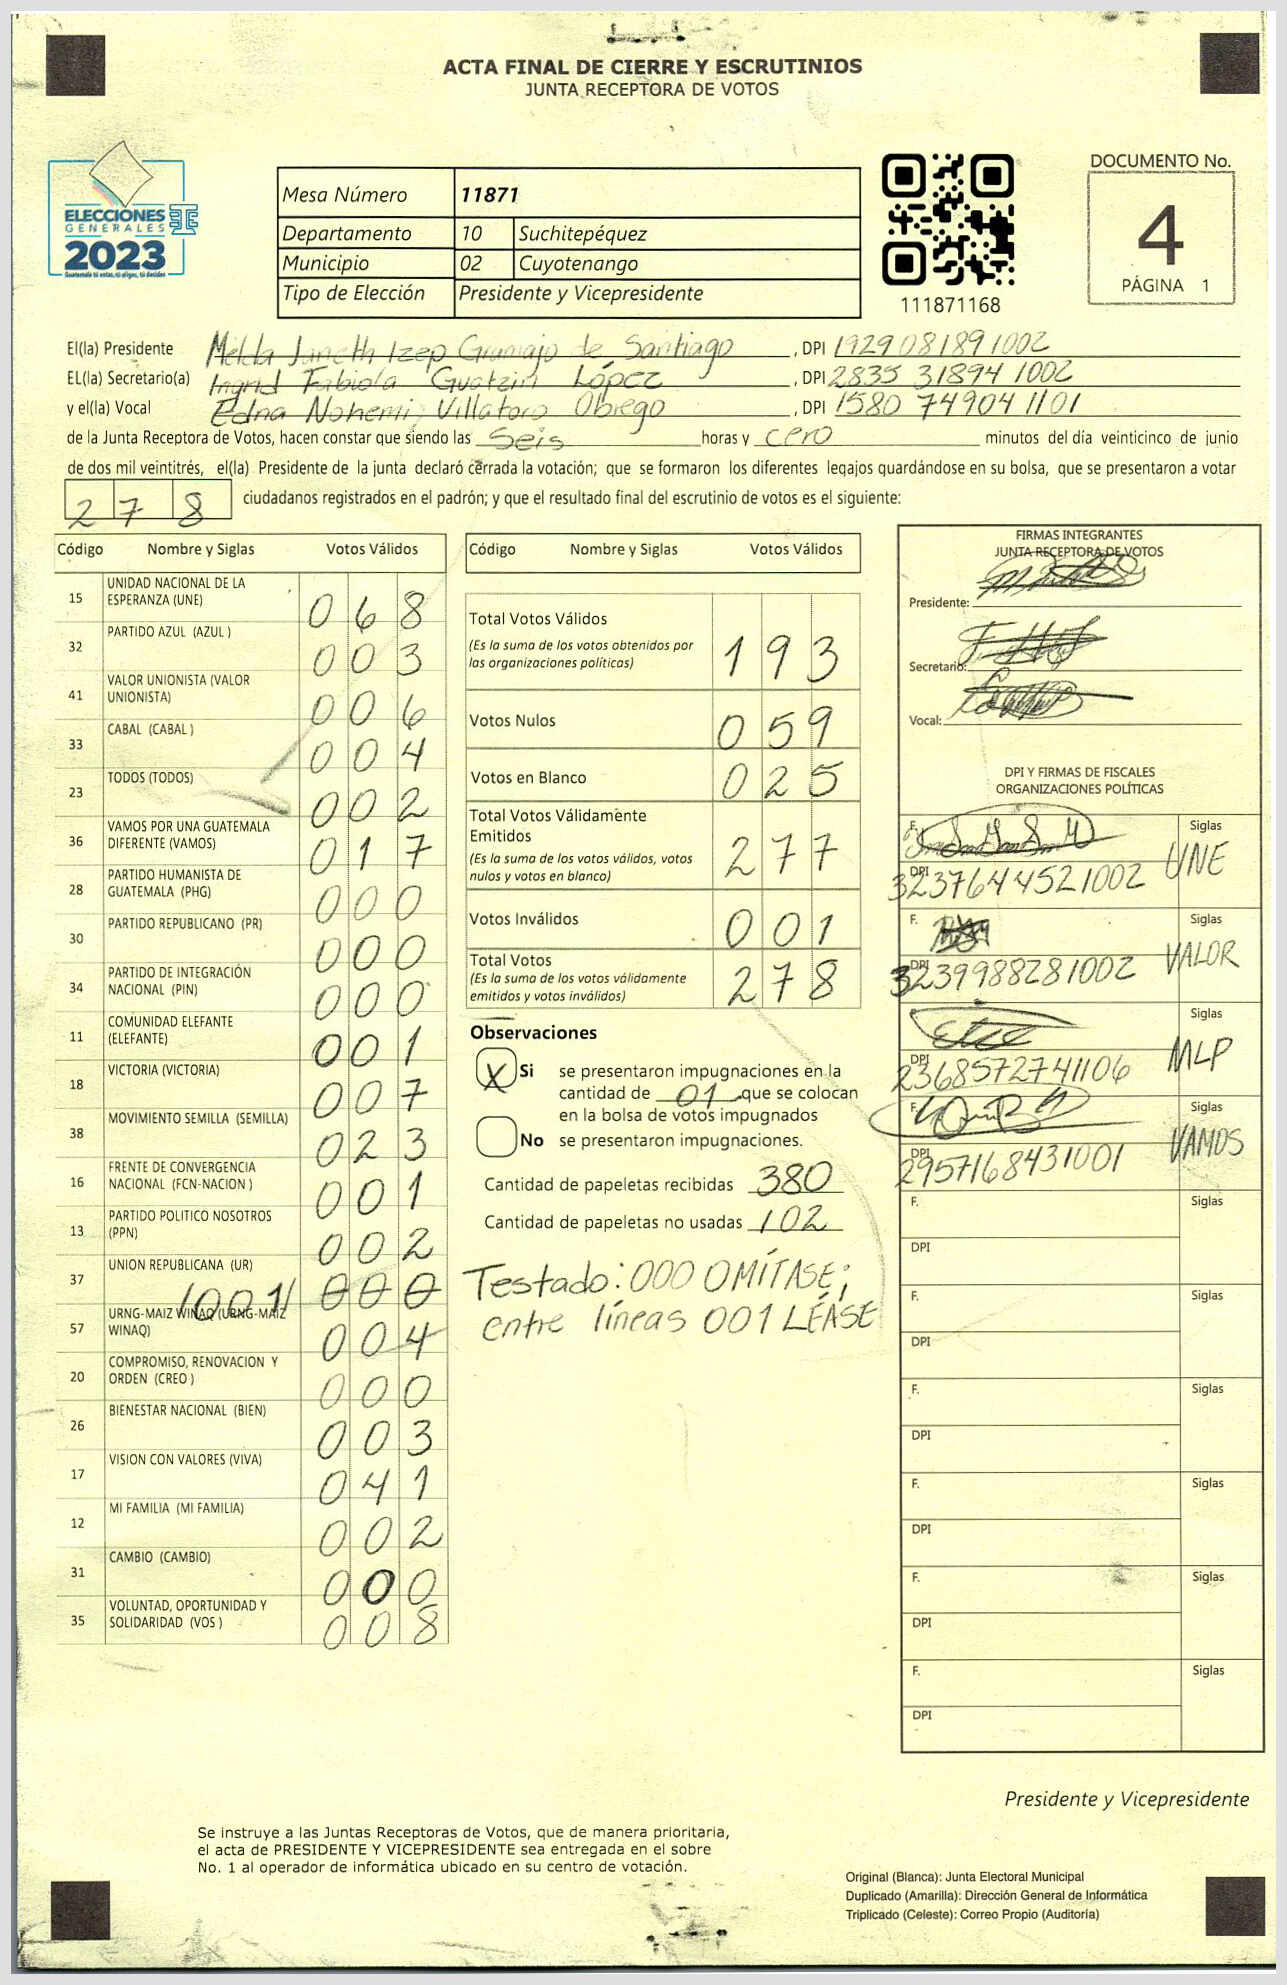 ACTA FINAL DE CIERRE Y ESCRUTINIOS
JUNTA RECEPTORA DE VOTOS
ELECCIONES
GENERALES
2023
Guatemala tú votas, tú eliges, tú decides
Mesa Número 11871
Departamento 10 Suchitepéquez
Municipio 02 Cuyotenango
Tipo de Elección Presidente y Vicepresidente
111871168
DOCUMENTO No.
4
PÁGINA 1
El(la) Presidente Melda Janeth Izep Gramajo de Santiago, DPI 1929 08189 1002
EL(la) Secretario(a) Ingrid Fabiola Guatzin López, DPI 2835 31894 1002
y el(la) Vocal Edna Nohemi Villatoro Obrego, DPI 1580 74904 1101
de la Junta Receptora de Votos, hacen constar que siendo las Seis horas y cero minutos del día veinticinco de junio
de dos mil veintitrés, el(la) Presidente de la junta declaró cerrada la votación; que se formaron los diferentes legajos quardándose en su bolsa, que se presentaron a votar
278 ciudadanos registrados en el padrón; y que el resultado final del escrutinio de votos es el siguiente:
Código Nombre y Siglas Votos Válidos
15 UNIDAD NACIONAL DE LA ESPERANZA (UNE) 068
32 PARTIDO AZUL (AZUL ) 003
41 VALOR UNIONISTA (VALOR UNIONISTA) 006
33 CABAL (CABAL ) 004
23 TODOS (TODOS) 002
36 VAMOS POR UNA GUATEMALA DIFERENTE (VAMOS) 017
28 PARTIDO HUMANISTA DE GUATEMALA (PHG) 000
30 PARTIDO REPUBLICANO (PR) 000
34 PARTIDO DE INTEGRACIÓN NACIONAL (PIN) 000
11 COMUNIDAD ELEFANTE (ELEFANTE) 001
18 VICTORIA (VICTORIA) 007
38 MOVIMIENTO SEMILLA (SEMILLA) 023
16 FRENTE DE CONVERGENCIA NACIONAL (FCN-NACION ) 001
13 PARTIDO POLITICO NOSOTROS (PPN) 002
37 UNION REPUBLICANA (UR) /001/ 000
57 URNG-MAIZ WINAQ (URNG-MAIZ WINAQ) 004
20 COMPROMISO, RENOVACION Y ORDEN (CREO ) 000
26 BIENESTAR NACIONAL (BIEN) 003
17 VISION CON VALORES (VIVA) 041
12 MI FAMILIA (MI FAMILIA) 002
31 CAMBIO (CAMBIO) 000
35 VOLUNTAD, OPORTUNIDAD Y SOLIDARIDAD (VOS ) 008
Código Nombre y Siglas Votos Válidos
Total Votos Válidos 193
(Es la suma de los votos obtenidos por
las organizaciones políticas)
Votos Nulos 059
Votos en Blanco 025
Total Votos Válidamente
Emitidos 277
(Es la suma de los votos válidos, votos
nulos y votos en blanco)
Votos Inválidos 001
Total Votos 278
(Es la suma de los votos válidamente
emitidos y votos inválidos)
Observaciones
X Si se presentaron impugnaciones en la
cantidad de 01 que se colocan
en la bolsa de votos impugnados
No se presentaron impugnaciones.
Cantidad de papeletas recibidas 380
Cantidad de papeletas no usadas 102
Testado: 000 OMÍTASE;
entre líneas 001 LÉASE
FIRMAS INTEGRANTES
JUNTA RECEPTORA DE VOTOS
Presidente:
Secretario:
Vocal:
DPI Y FIRMAS DE FISCALES
ORGANIZACIONES POLÍTICAS
F. Siglas UNE
DPI 3237644521002
F. Siglas VALOR
DPI 3239988281002
F. Siglas MLP
DPI 2368572741106
F. Siglas VAMOS
DPI 2957168431001
F. Siglas
DPI
F. Siglas
DPI
F. Siglas
DPI
F. Siglas
DPI
F. Siglas
DPI
F. Siglas
DPI
Presidente y Vicepresidente
Se instruye a las Juntas Receptoras de Votos, que de manera prioritaria,
el acta de PRESIDENTE Y VICEPRESIDENTE sea entregada en el sobre
No. 1 al operador de informática ubicado en su centro de votación.
Original (Blanca): Junta Electoral Municipal
Duplicado (Amarilla): Dirección General de Informática
Triplicado (Celeste): Correo Propio (Auditoría)